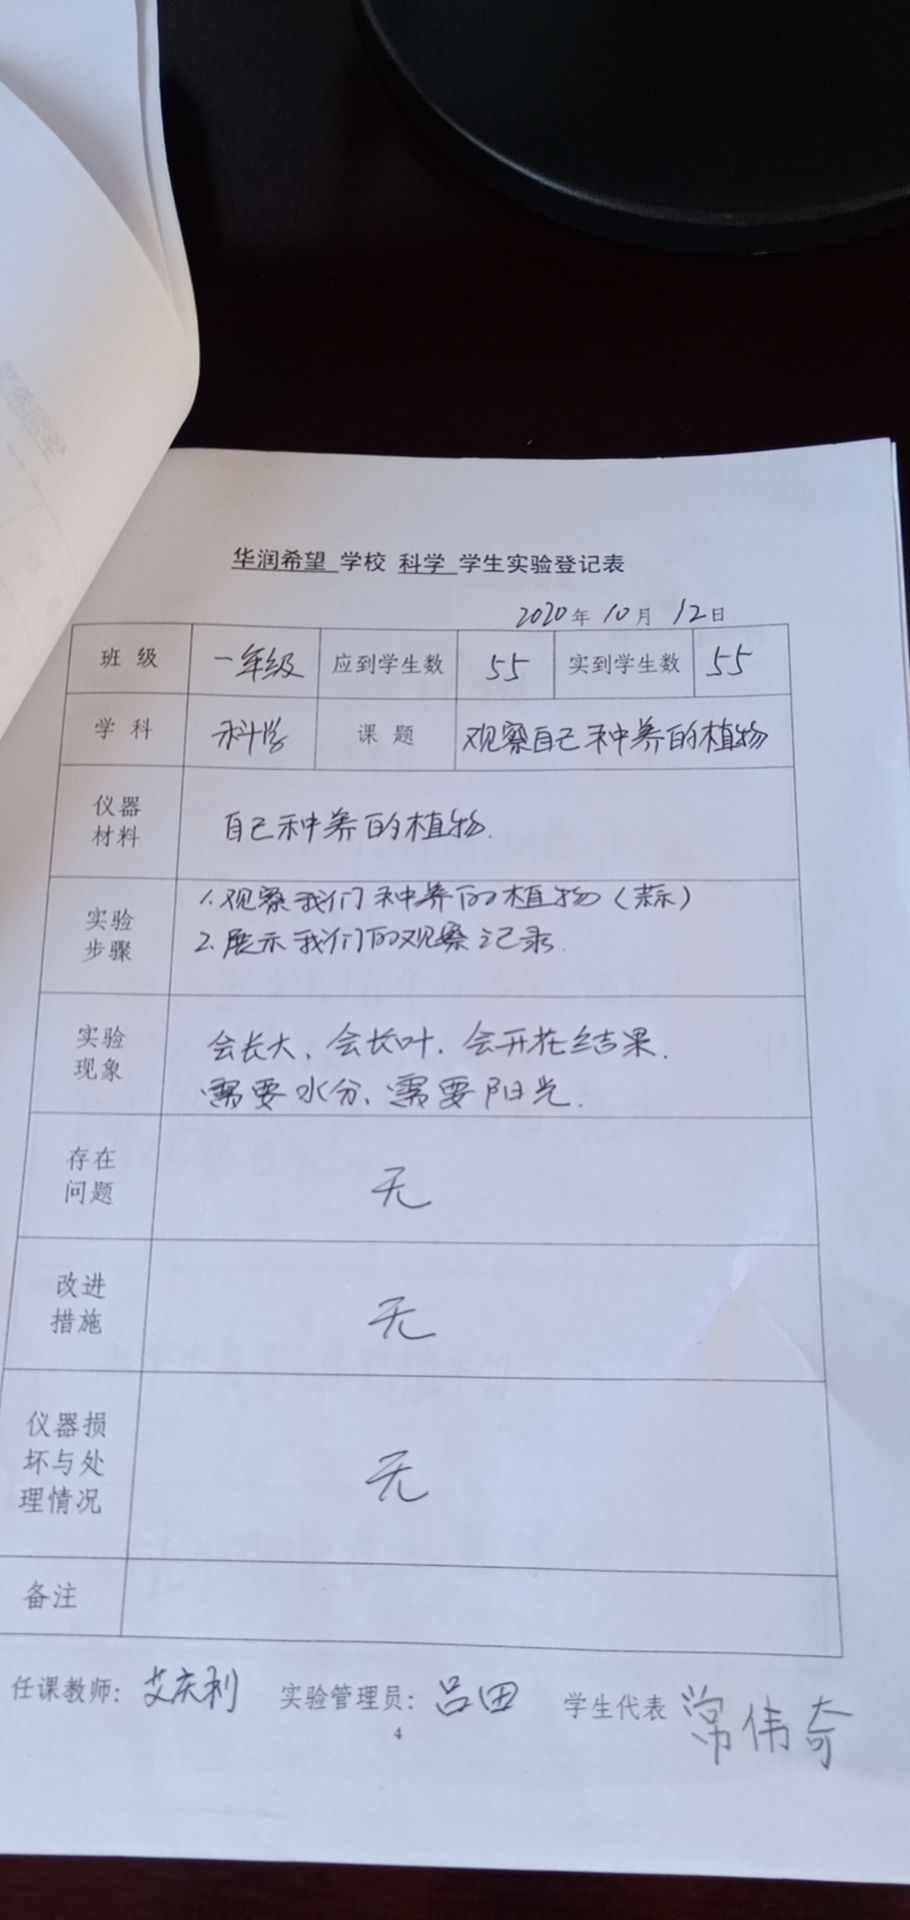 华润希望 学校 科学 学生实验登记表
2020年 10月 12日
班级 一年级 应到学生数 55 实到学生数 55
学科 科学 课题 观察自己种养的植物
仪器
材料
自己种养的植物.
实验
步骤
1.观察我们种养的植物（蒜）
2.展示我们的观察记录.
实验
现象
会长大、会长叶、会开花结果.
需要水分、需要阳光.
存在
问题
无
改进
措施
无
仪器损
坏与处
理情况
无
备注
任课教师：艾庆利 实验管理员：吕田 学生代表 常伟奇
4